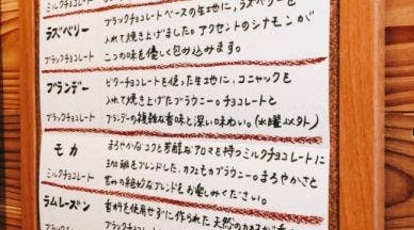 ミルクチョコレート
ラズベリー
ブラックチョコレートベースの生地に、ラズベリーを
入れて焼き上げました。アクセントのシナモンが
ブラックチョコレート
二つの味を優しく包み込みます。
ブランデー
ビターチョコレートを使った生地に、コニャックを
入れて焼き上げたブラウニー。チョコレートと
ブラックチョコレート
ブランデーの複雑な香味と深い味わい。(水曜以外)
モカ
まろやかなコクと芳醇なアロマを持つミルクチョコレートに
珈琲をブレンドした、カフェモカブラウニー。まろやかさと
ミルクチョコレート
苦みの絶妙なブレンドをお楽しみください。
ラムレーズン
香料を使用せずに作られた天然の